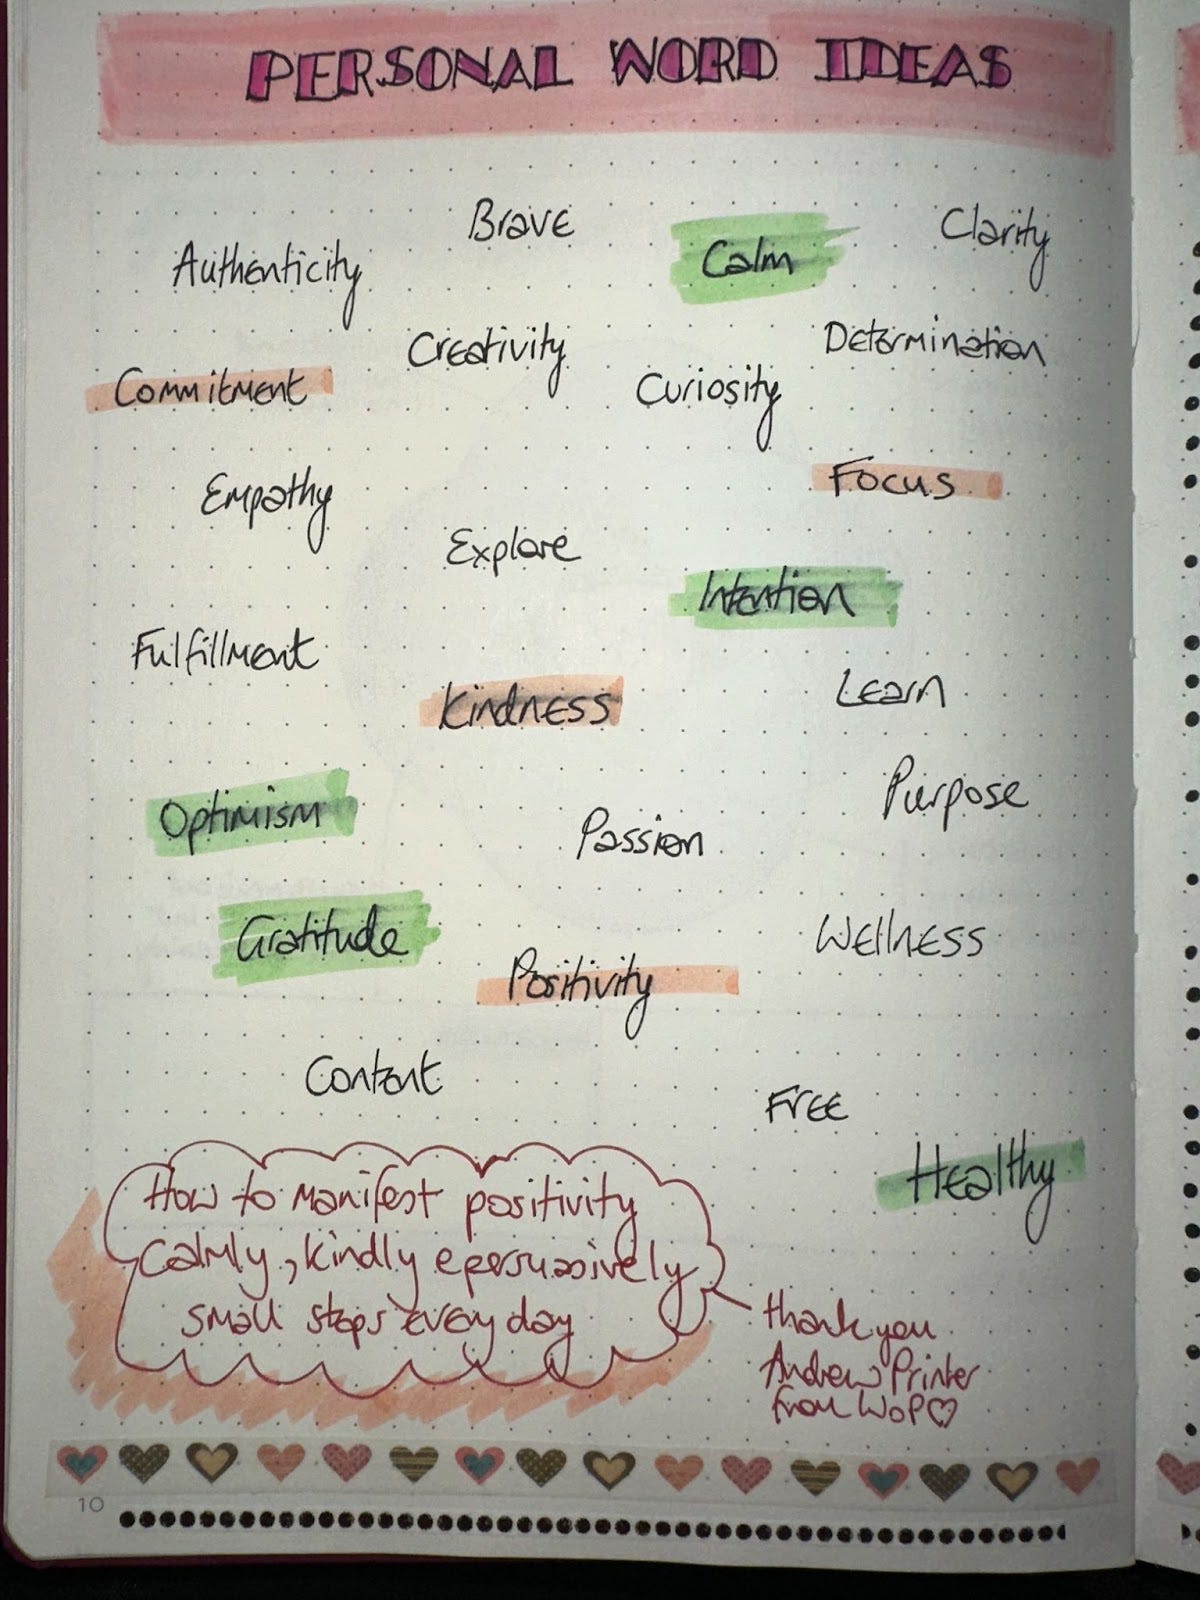 PERSONAL WORD IDEAS
Brave
Clarity
Calm
Authenticity
Creativity
Determination
Commitment
Curiosity
Focus
Empathy
Explore
Intention
Fulfillment
Kindness
Learn
Purpose
Optimism
Passion
Gratitude
Wellness
Positivity
Content
Free
Healthy
How to manifest positivity
calmly, kindly & persuasively
small steps every day
thank you
Andrew Printer
from WoP♡
10